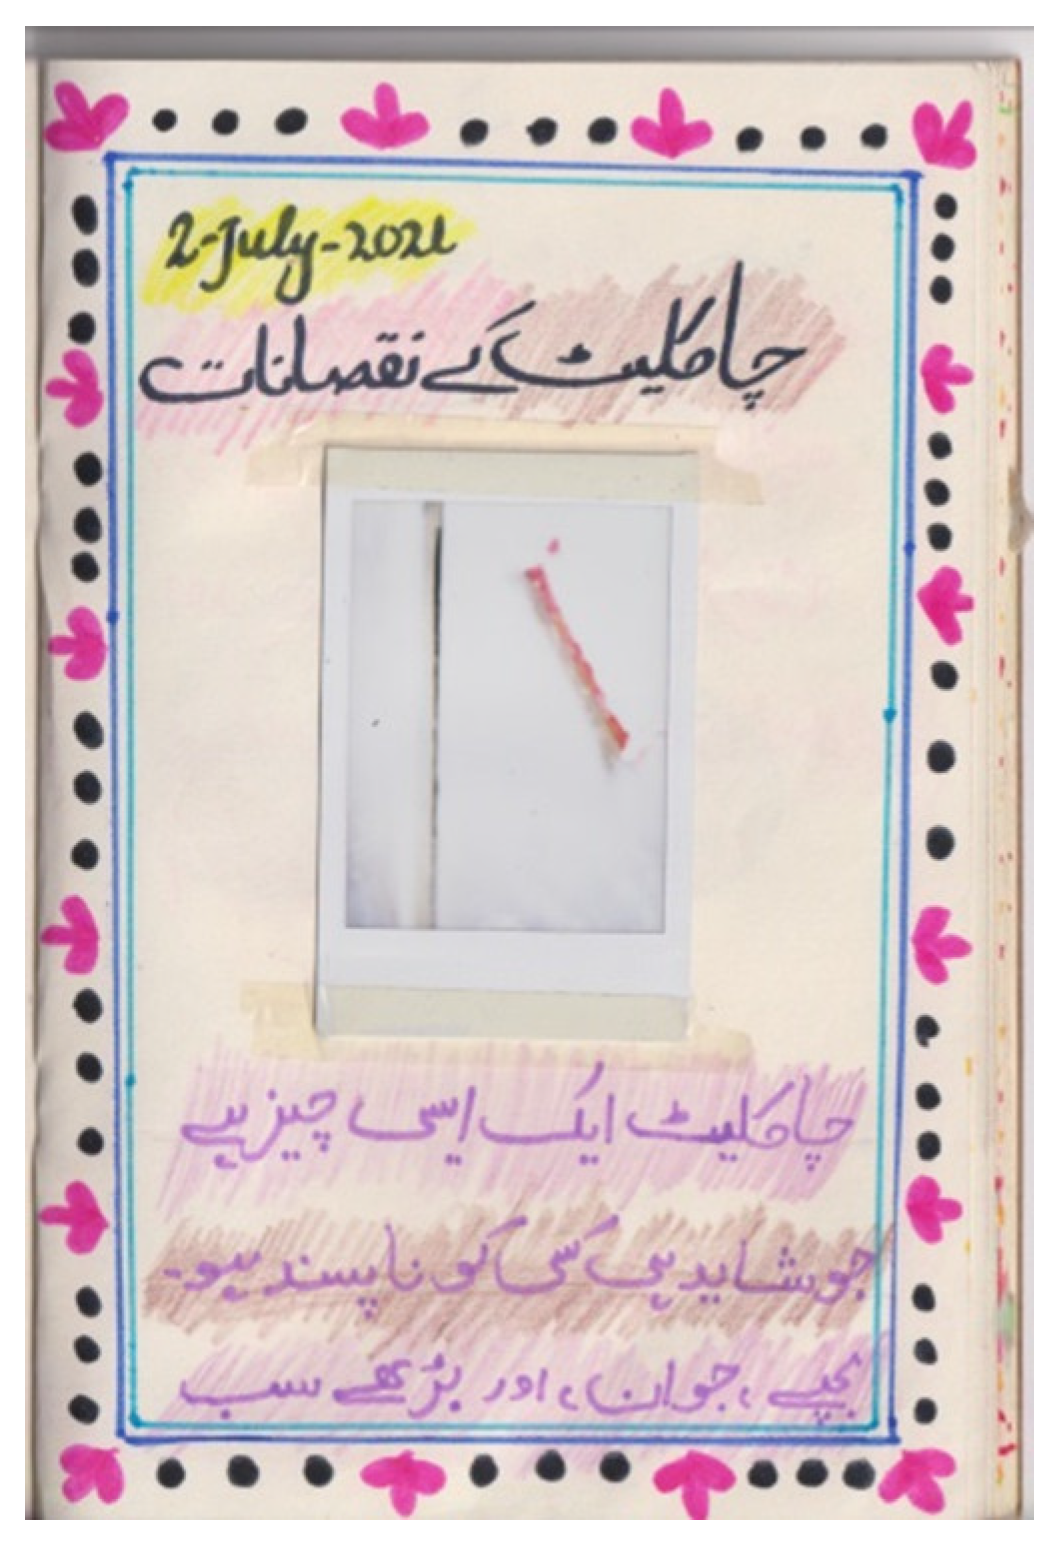 2-July-2021
چاکلیٹ کے نقصانات
چاکلیٹ ایک ایسی چیز ہے
جو شاید ہی کسی کو ناپسند ہو۔
بچے، جوان، اور بڑھے سب